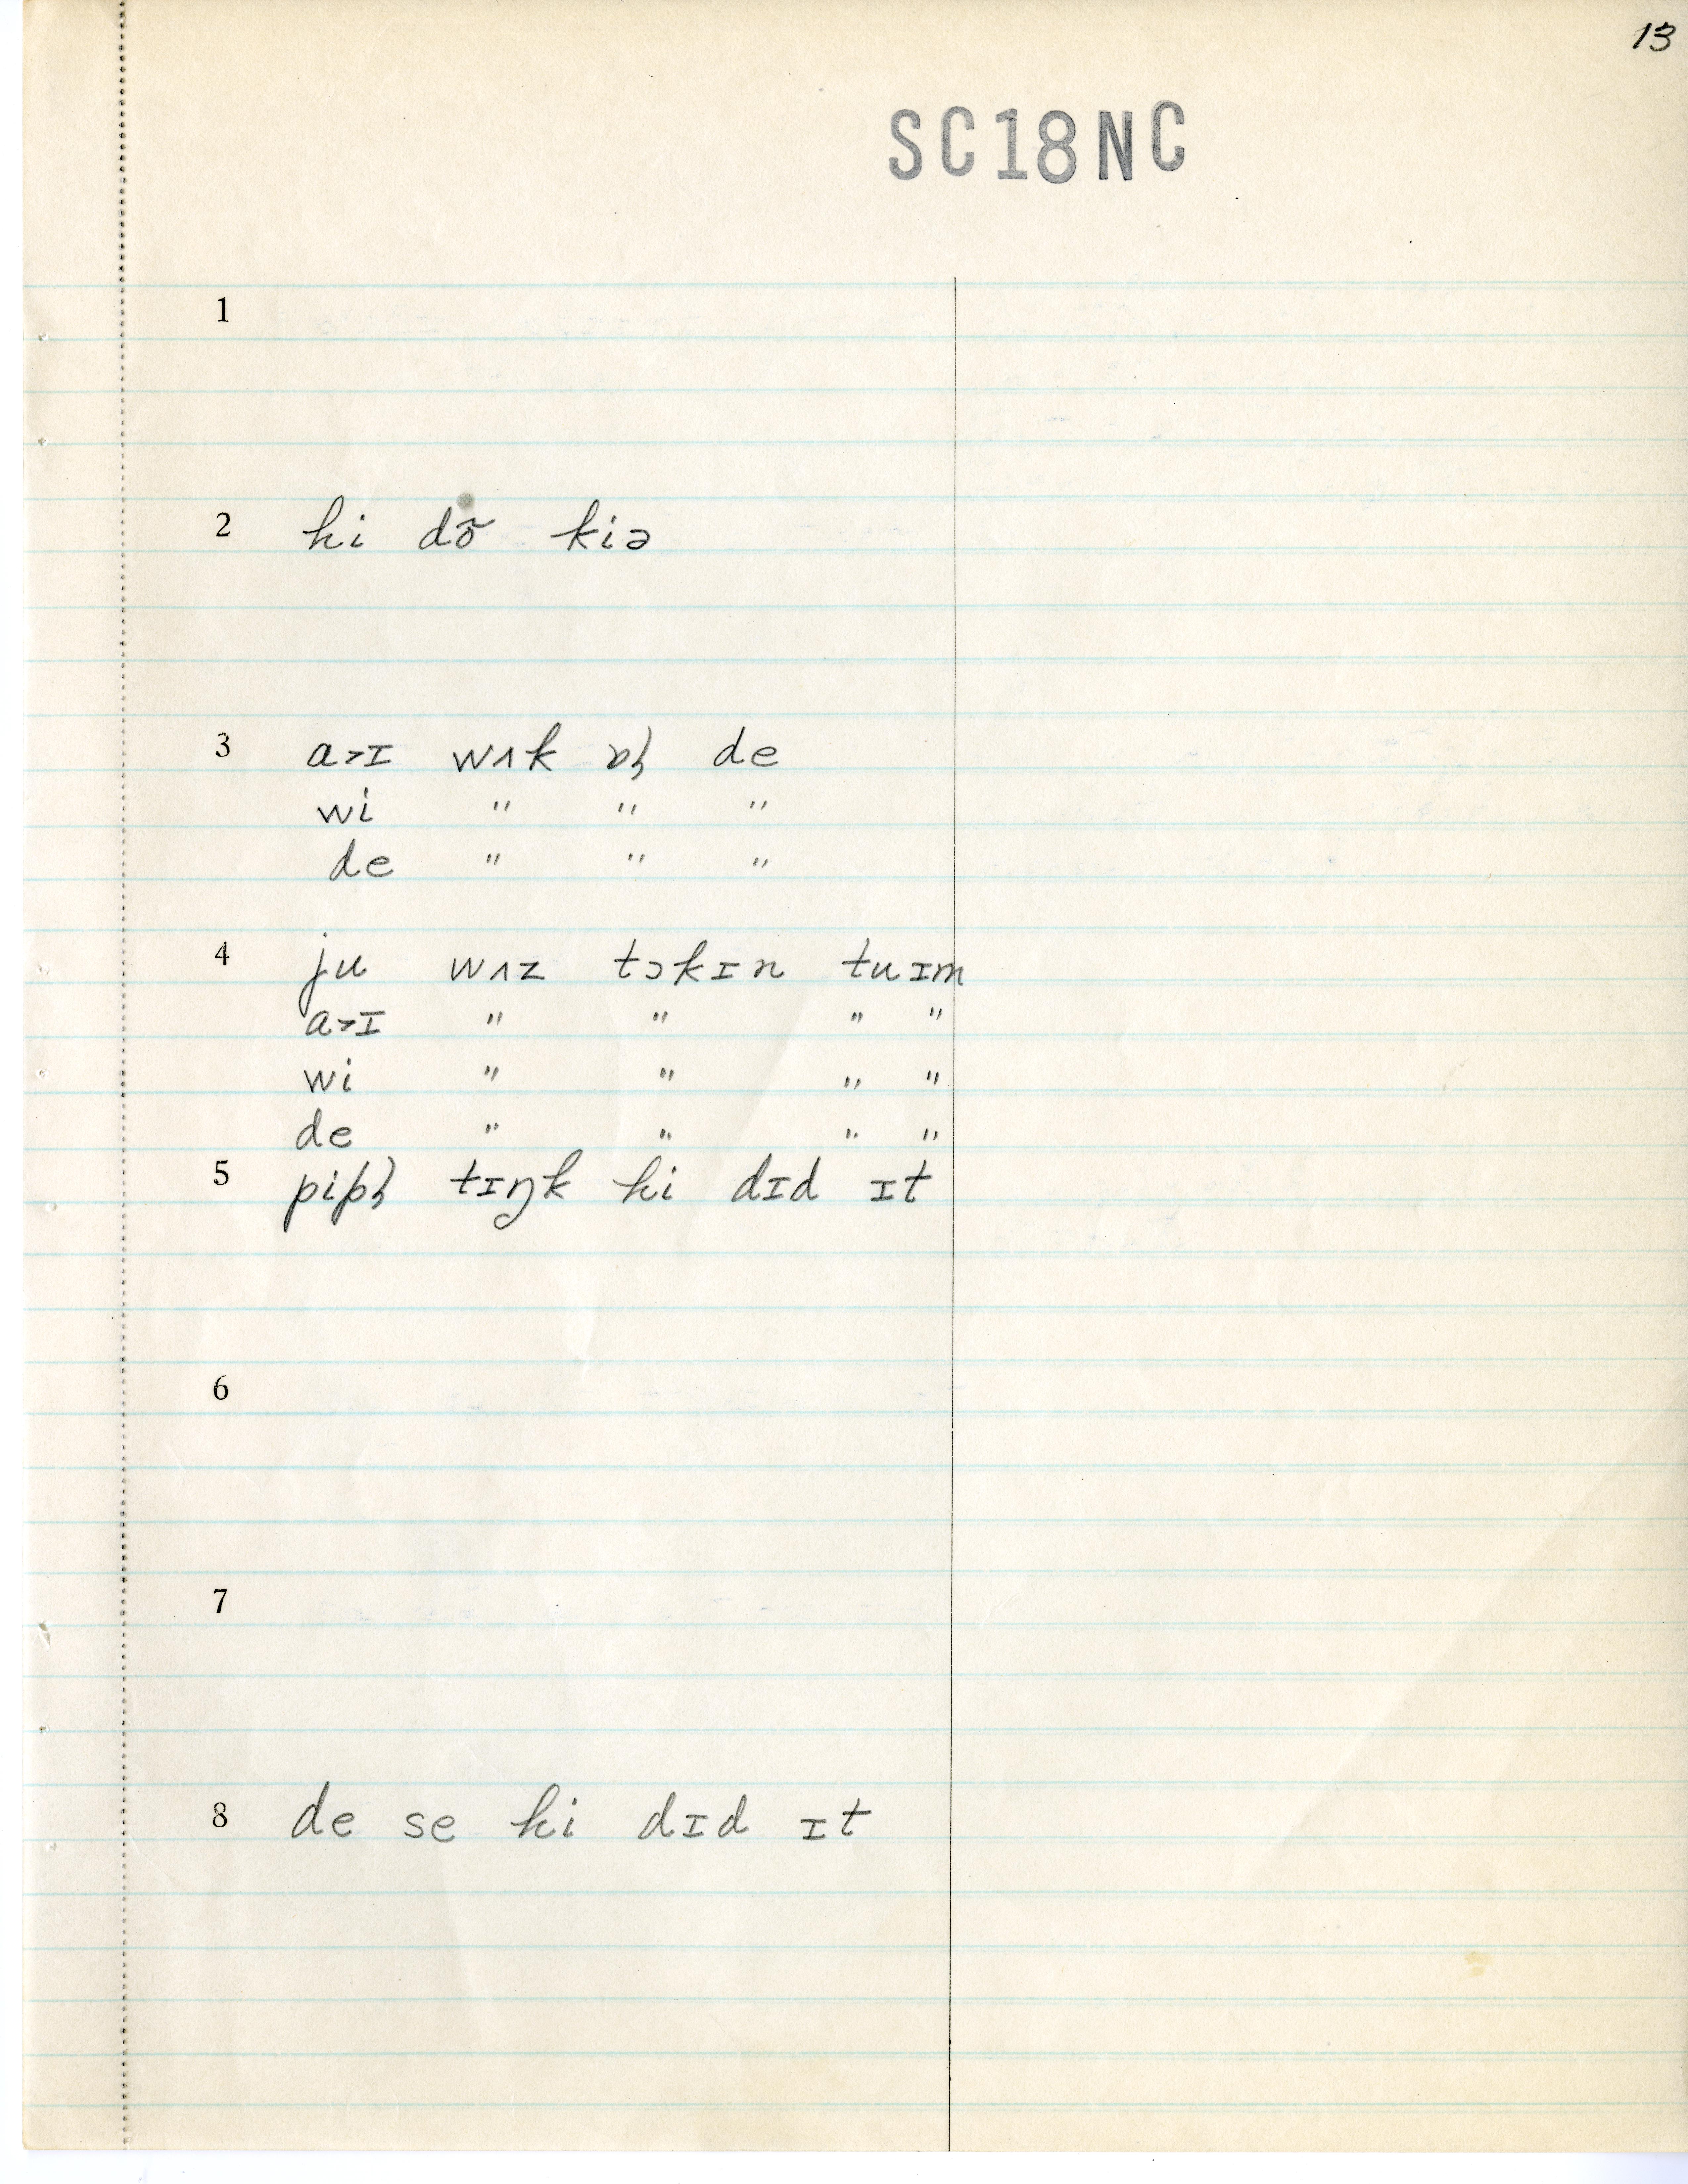 13
SC18NC
1
2 hi dõ kiə
3 a>ɪ wʌk de
wi " " "
de " " "
4 ju wʌz tɔkɪn tuɪm
a>ɪ " " " "
wi " " " "
de " " " "
5 tɪŋk hi dɪd ɪt
6
7
8 de se hi dɪd ɪt